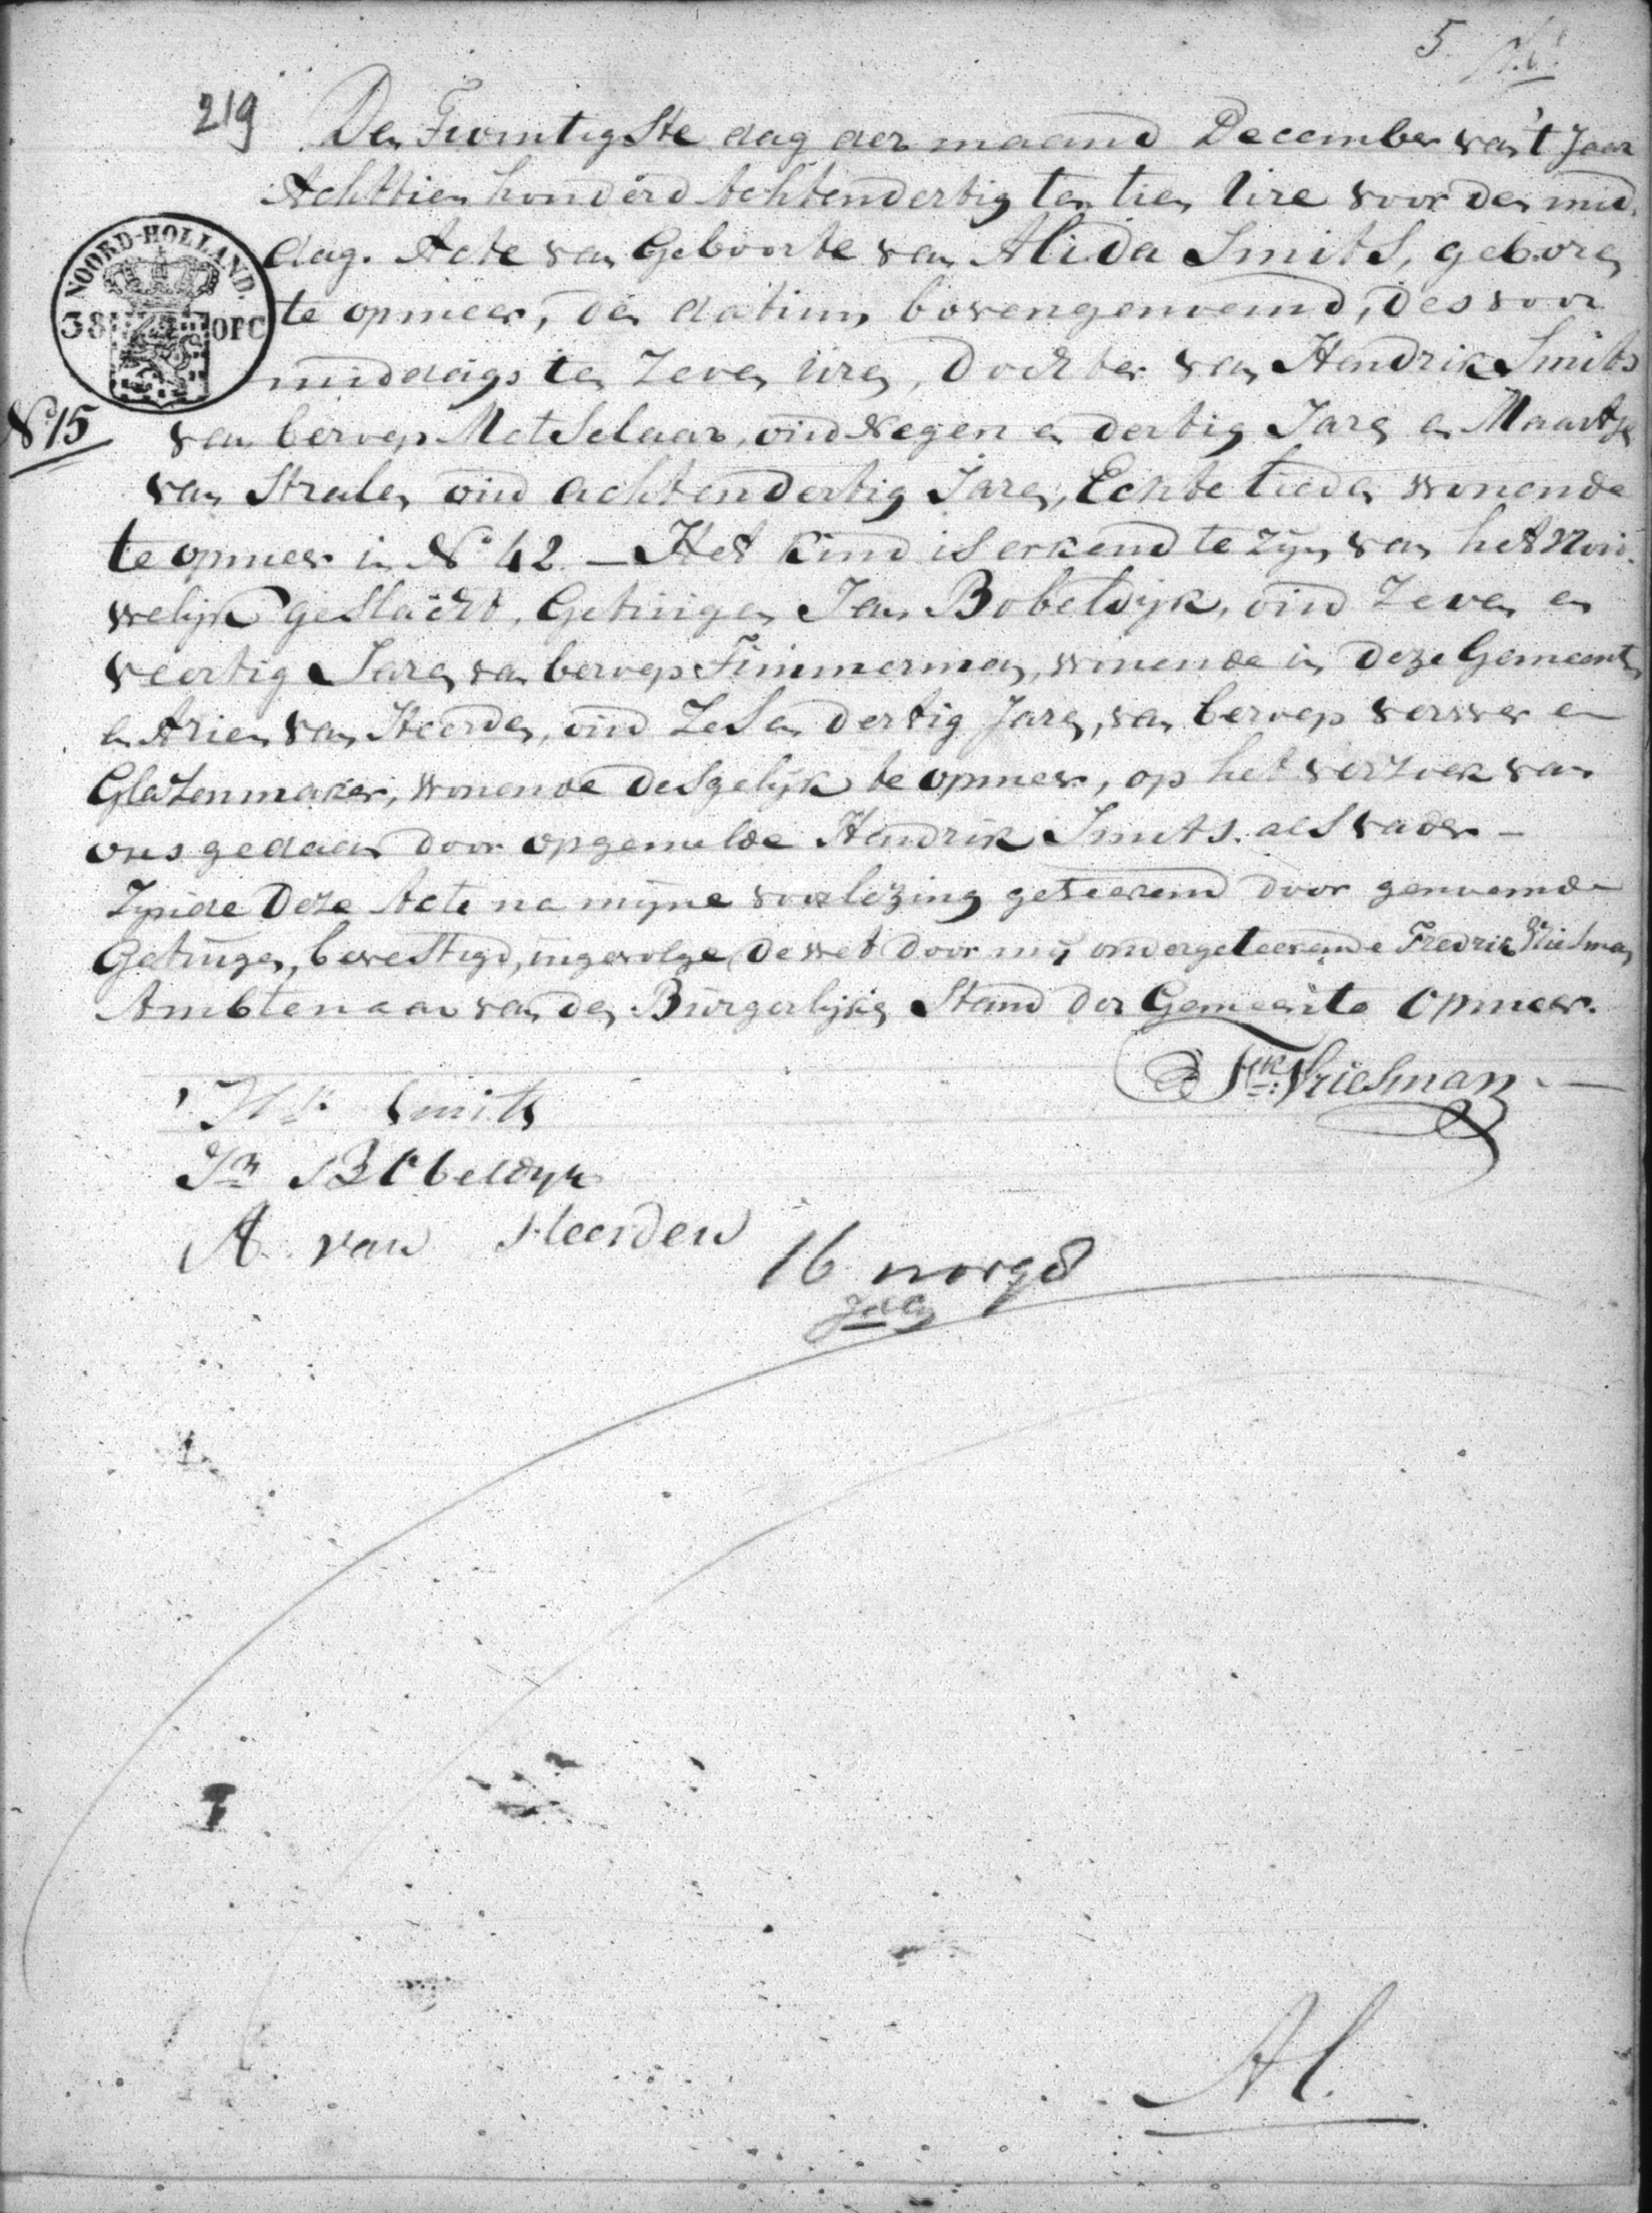 5
219
Den Twintigste dag der maand December van 't Jaar
Achttien honderd Achtendertig ten tien Ure voor den mid.
dag. Acte van Geboorte van Alida Smits, geboren
te opmeer, den datum bovengenoemd, des voor
NOORD-HOLLAND.
38 OPC
middags ten Zeven Uren, Dochter van Hendrik Smits
No 15
van beroep Metselaar, oud Negen en dertig Jaren en Maartje
van Stralen oud achtendertig Jaren, Echte Lieden wonende
te opmeer in No 42 — Het Kind is erkend te zijn van het Vrou.
welijk geslacht, Getuigen Jan Bobeldijk, oud Zeven en
veertig Jaren van beroep Timmerman, wonende in deze Gemeente
en Arien van Heerden, oud Zes en dertig Jaren, van beroep verwer en
Glazenmaker, wonende desgelijk te opmeer, op het verzoek van
ons gedaan door opgemelde Hendrik Smits. als vader —
Zijnde Deze Acte na mijne voorlezing geteekend door genoemde
Getuigen, bevestigd, ingevolge de wet door mij ondergeteekende Fredrik Vrieman
Ambtenaar van den Burgerlijken Stand der Gemeente Opmeer.
Frk: Vriesman
Hk Smits
Jn Bobeldijk
A van Heerden
16
Al.